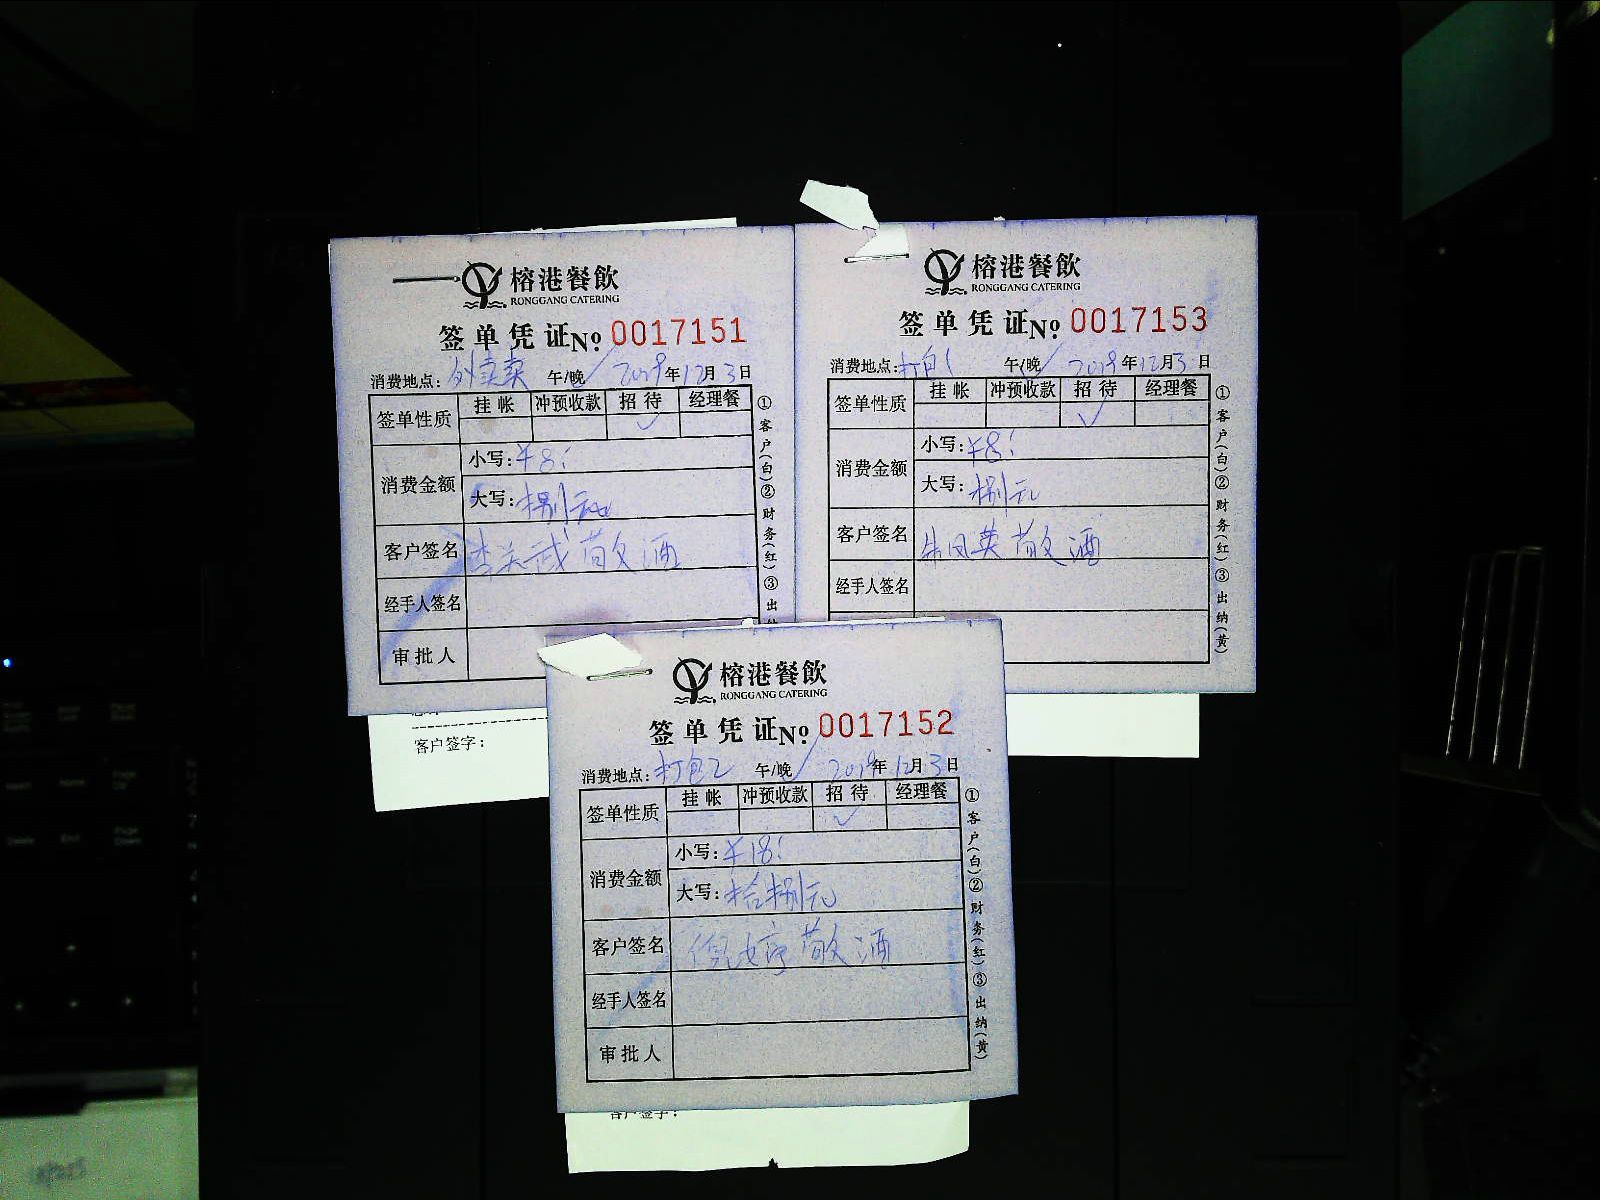 榕港餐飲
RONGGANG CATERING
签单凭证 No 0017151
消费地点: 外卖 午/晚 ✓ 2019年12月3日
签单性质 挂帐 冲预收款 招待 经理餐
✓
消费金额
小写: ¥8
大写: 捌元
客户签名 敬酒
经手人签名
审批人
①客户(白)②财务(红)③出纳
客户签字:
榕港餐飲
RONGGANG CATERING
签单凭证 No 0017153
消费地点: 打包1 午/晚 ✓ 2019年12月3日
签单性质 挂帐 冲预收款 招待 经理餐
✓
消费金额
小写: ¥8
大写: 捌元
客户签名 朱风英 敬酒
经手人签名
①客户(白)②财务(红)③出纳(黄)
榕港餐飲
RONGGANG CATERING
签单凭证 No 0017152
消费地点: 打包2 午/晚 ✓ 2019年12月3日
签单性质 挂帐 冲预收款 招待 经理餐
✓
消费金额
小写: ¥18
大写: 拾捌元
客户签名 敬酒
经手人签名
审批人
①客户(白)②财务(红)③出纳(黄)
客户签字: